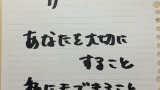 あなたを大切に
すること
私にもできること